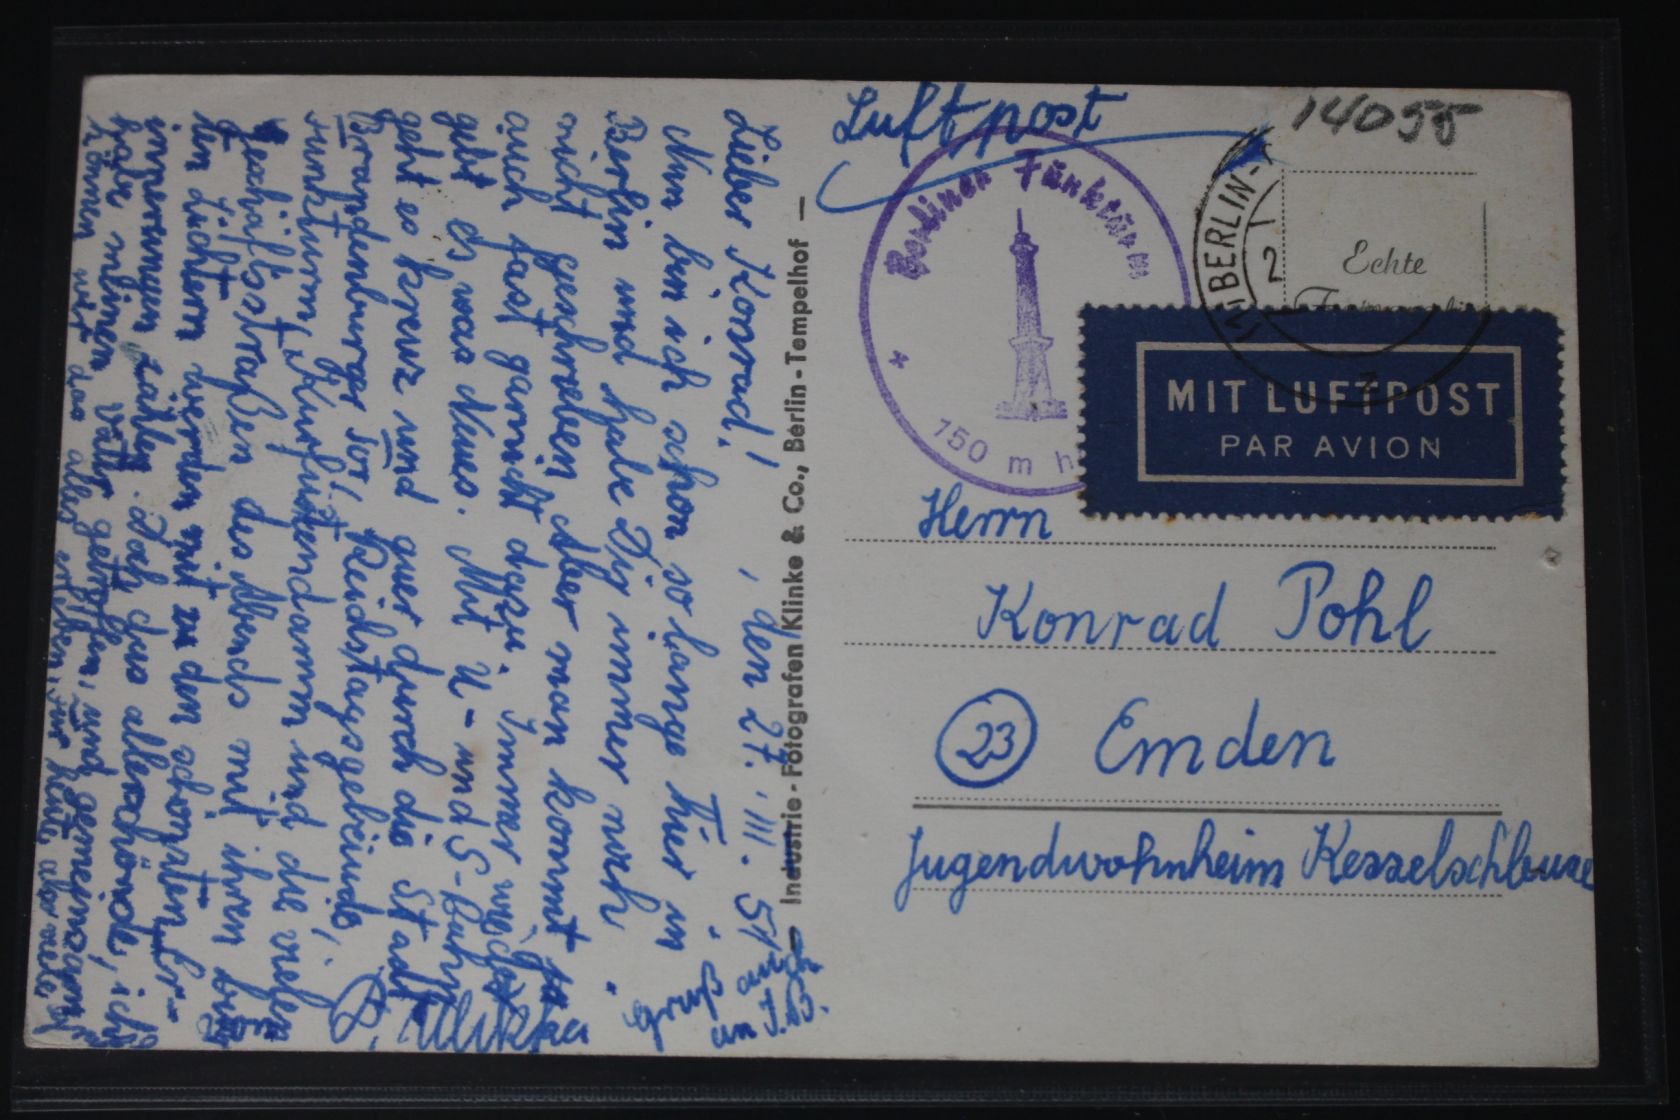 Lieber Konrad!, den 27.III.51.
Nun bin ich schon so lange hier in
Berlin und habe Dir immer noch
nicht geschrieben. Aber man kommt ja
auch fast garnicht dazu. Immer wieder
gibt es was Neues. Mit U- und S-Bahn
geht es kreuz und quer durch die Stadt
Brandenburger Tor, Reichstagsgebäude,
Funkturm, Kurfürstendamm und die vielen
Geschäftsstraßen des Abends mit ihren bun-
ten Lichtern werden mit zu den schönsten Er-
innerungen zählen. Doch das allerschönste, ich
habe meinen Vater getroffen, und gemeinsam
können wir das alles erleben. Für heute aber viele
Gruß auch
an J.B.
Industrie-Fotografen Klinke & Co., Berlin-Tempelhof
Luftpost
14055
Berliner Funkturm
150 m h
BERLIN-
2
Echte
MIT LUFTPOST
PAR AVION
Herrn
Konrad Pohl
23 Emden
Jugendwohnheim Kesselschleuse